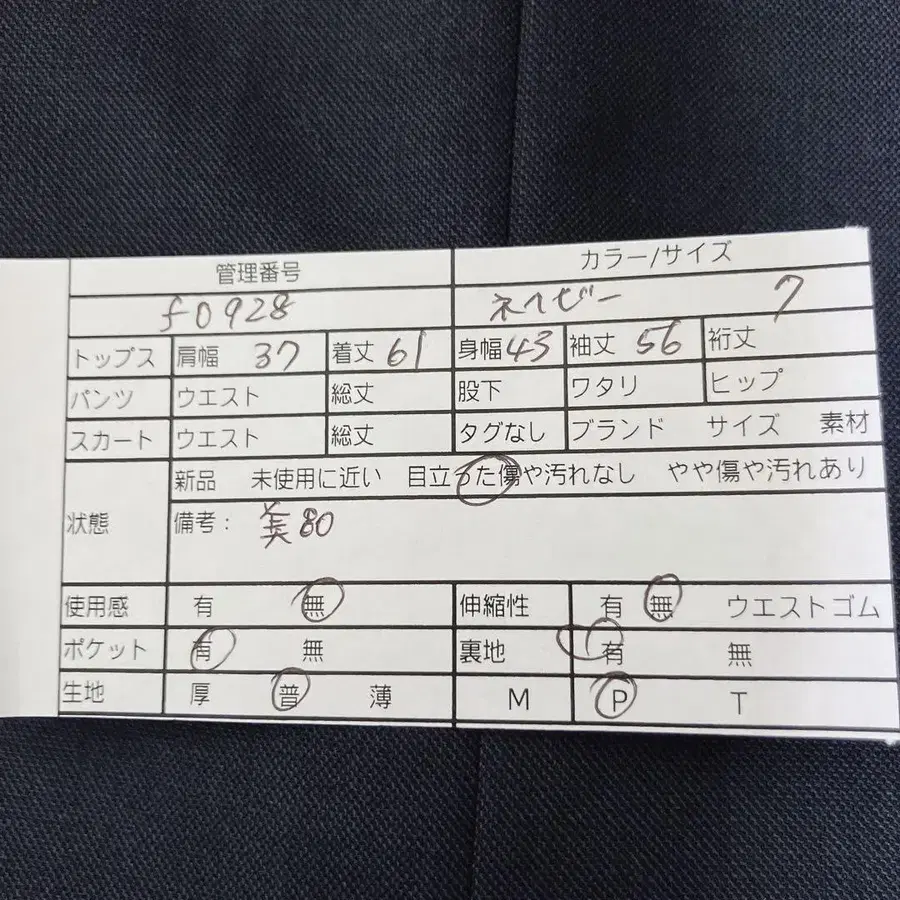 管理番号 カラー/サイズ
f0928 ネイビー 7
トップス 肩幅 37 着丈 61 身幅 43 袖丈 56 裄丈
パンツ ウエスト 総丈 股下 ワタリ ヒップ
スカート ウエスト 総丈 タグなし ブランド サイズ 素材
状態 新品 未使用に近い 目立った傷や汚れなし やや傷や汚れあり
備考: 美80
使用感 有 無 伸縮性 有 無 ウエストゴム
ポケット 有 無 裏地 有 無
生地 厚 普 薄 M P T